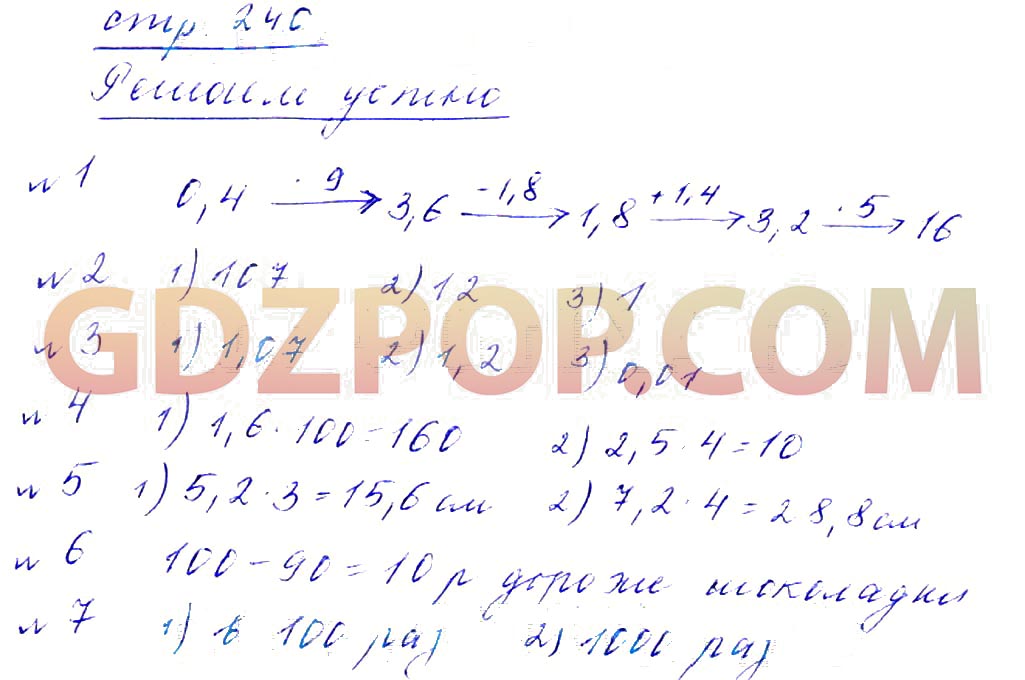 стр. 246
Решаем устно
№ 1 0,4 ·9→ 3,6 -1,8→ 1,8 +1,4→ 3,2 ·5→ 16
№ 2 1) 107 2) 12 3) 1
GDZPOP.COM
№ 3 1) 1,07 2) 1,2 3) 0,01
№ 4 1) 1,6·100=160 2) 2,5·4=10
№ 5 1) 5,2·3=15,6 см 2) 7,2·4=28,8 см
№ 6 100-90=10 р дороже шоколадки
№ 7 1) в 100 раз 2) 1000 раз